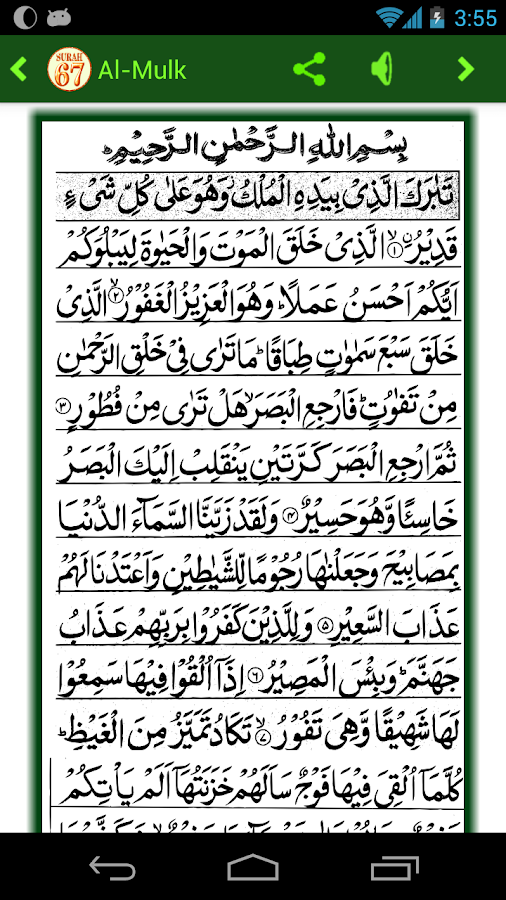 3:55
SURAH
67
Al-Mulk
بِسْمِ اللهِ الرَّحْمٰنِ الرَّحِيْمِ
تَبٰرَكَ الَّذِىْ بِيَدِهِ الْمُلْكُ وَهُوَ عَلٰى كُلِّ شَىْءٍ
قَدِيْرُۨ ۙ﴿۱﴾ الَّذِىْ خَلَقَ الْمَوْتَ وَالْحَيٰوةَ لِيَبْلُوَكُمْ
اَيُّكُمْ اَحْسَنُ عَمَلًا ؕ وَهُوَ الْعَزِيْزُ الْغَفُوْرُ ۙ﴿۲﴾ الَّذِىْ
خَلَقَ سَبْعَ سَمٰوٰتٍ طِبَاقًا ؕ مَا تَرٰى فِىْ خَلْقِ الرَّحْمٰنِ
مِنْ تَفٰوُتٍ ؕ فَارْجِعِ الْبَصَرَ ۙ هَلْ تَرٰى مِنْ فُطُوْرٍ ﴿۳﴾
ثُمَّ ارْجِعِ الْبَصَرَ كَرَّتَيْنِ يَنْقَلِبْ اِلَيْكَ الْبَصَرُ
خَاسِئًا وَّهُوَ حَسِيْرٌ ﴿۴﴾ وَلَقَدْ زَيَّنَّا السَّمَآءَ الدُّنْيَا
بِمَصَابِيْحَ وَجَعَلْنٰهَا رُجُوْمًا لِّلشَّيٰطِيْنِ وَاَعْتَدْنَا لَهُمْ
عَذَابَ السَّعِيْرِ ﴿۵﴾ وَلِلَّذِيْنَ كَفَرُوْا بِرَبِّهِمْ عَذَابُ
جَهَنَّمَ ؕ وَبِئْسَ الْمَصِيْرُ ﴿۶﴾ اِذَاۤ اُلْقُوْا فِيْهَا سَمِعُوْا
لَهَا شَهِيْقًا وَّهِىَ تَفُوْرُ ۙ﴿۷﴾ تَكَادُ تَمَيَّزُ مِنَ الْغَيْظِ ؕ
كُلَّمَاۤ اُلْقِىَ فِيْهَا فَوْجٌ سَاَلَهُمْ خَزَنَتُهَاۤ اَلَمْ يَاْتِكُمْ